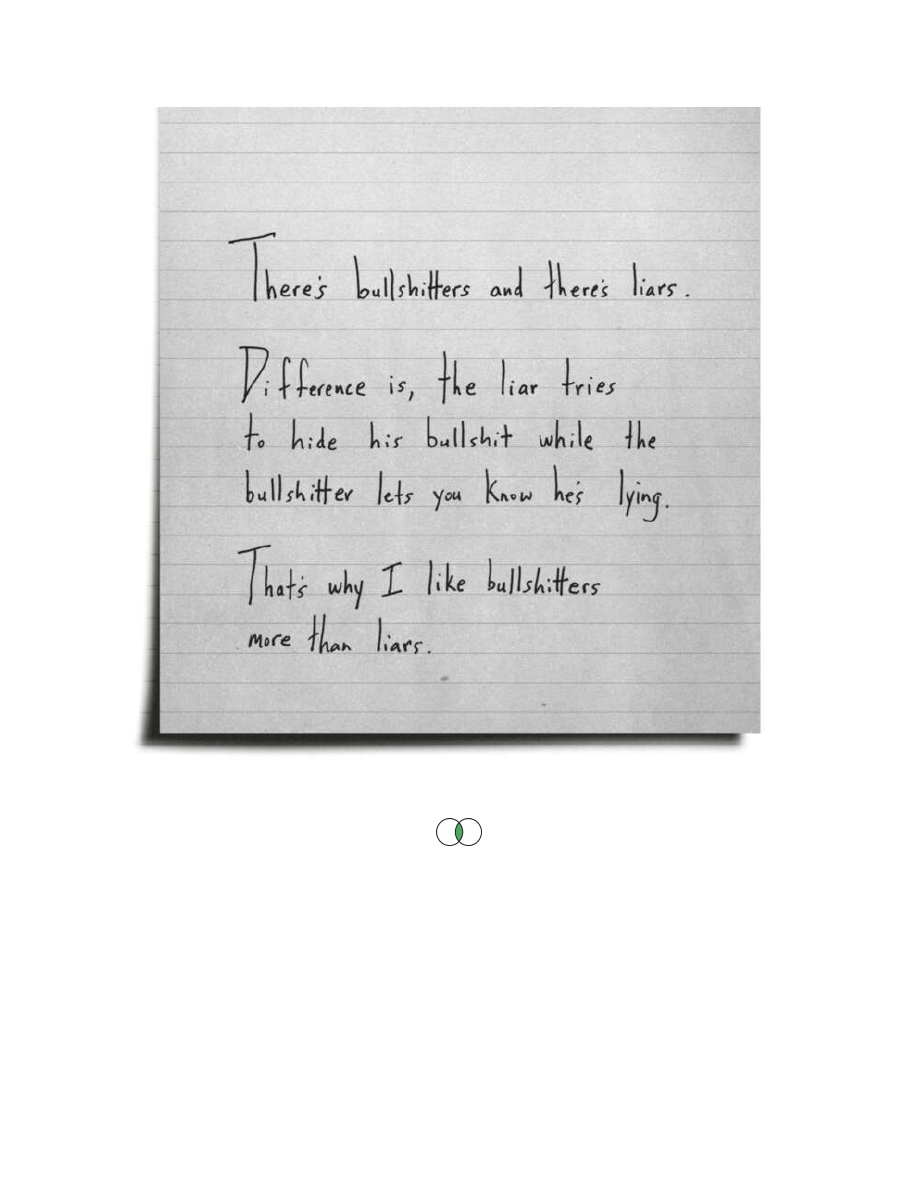 There's bullshitters and there's liars.
Difference is, the liar tries
to hide his bullshit while the
bullshitter lets you know he's lying.
That's why I like bullshitters
more than liars.